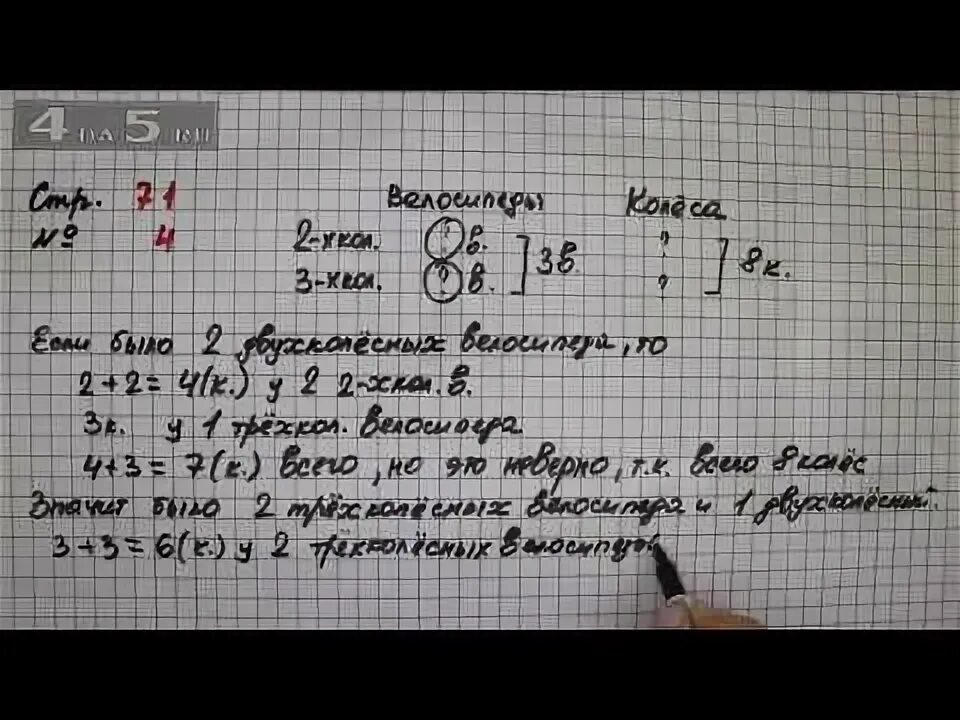 4 на 5 .ru
Стр. 71 Велосипеды Колёса
№ 4 2-хкол. ? в. ] 3в ? ] 8к.
3-хкол. ? в. ?
Если было 2 двухколёсных велосипеда, то
2+2=4(к.) у 2 2-хкол. в.
3к. у 1 трёхкол. велосипеда.
4+3=7(к.) всего, но это неверно, т.к. всего 8 колёс
Значит было 2 трёхколёсных велосипеда и 1 двухколёсный.
3+3=6(к.) у 2 трёхколёсных велосипедов